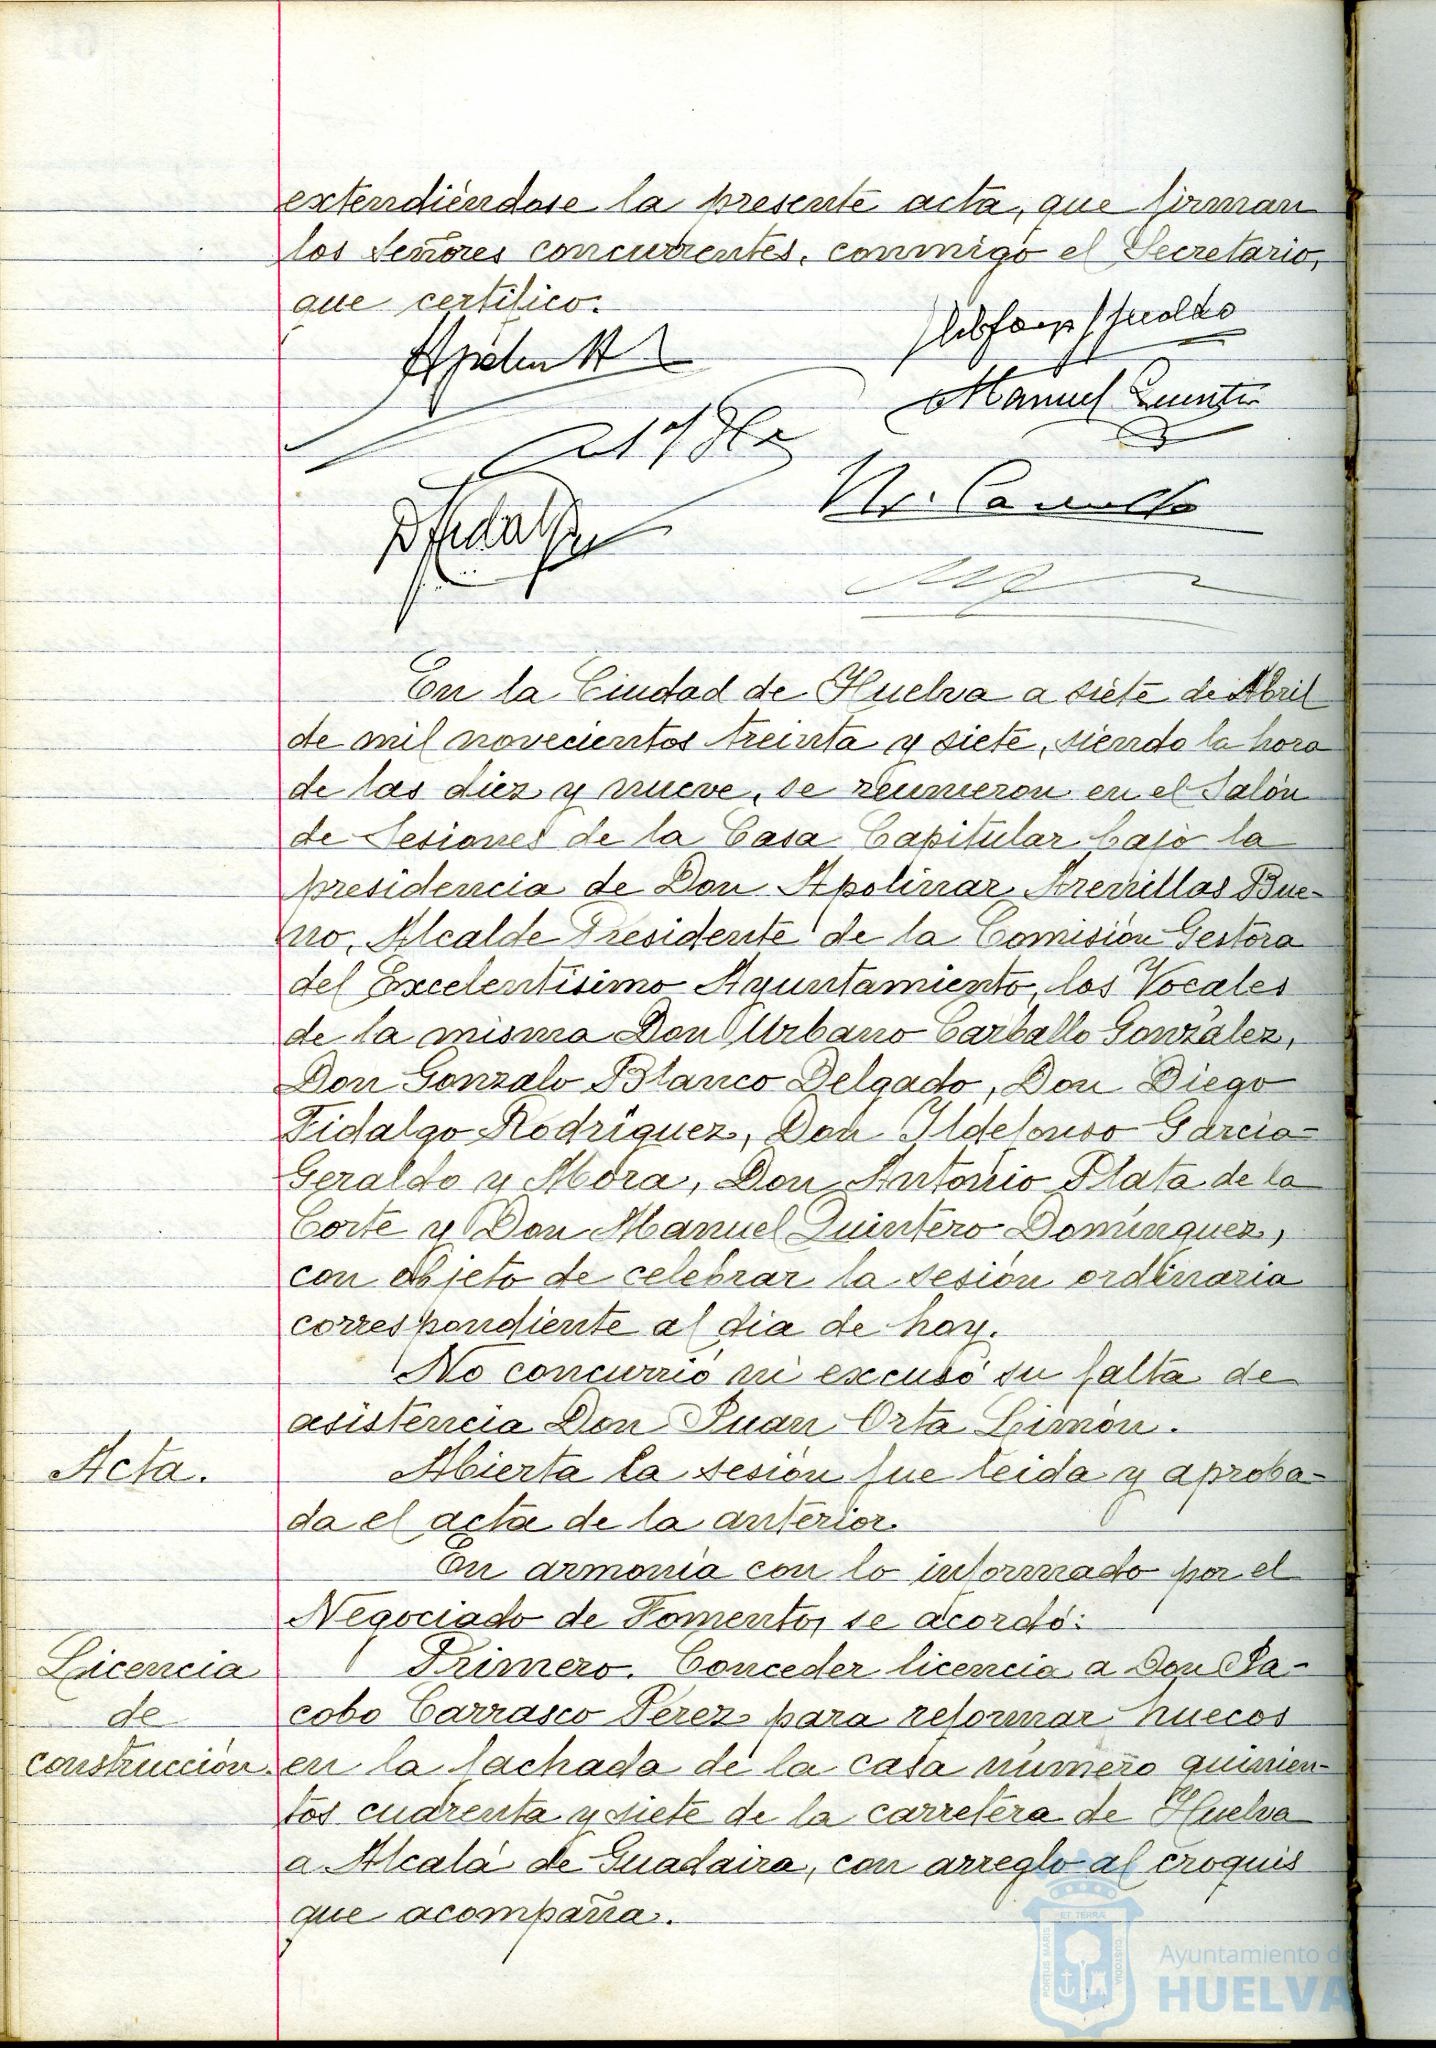 extendiéndose la presente acta, que firman
los Señores concurrentes, conmigo el Secretario,
que certifico.
Manuel Quintero
D Fidalgo
En la Ciudad de Huelva a siete de Abril
de mil novecientos treinta y siete, siendo la hora
de las diez y nueve, se reunieron en el Salón
de Sesiones de la Casa Capitular bajo la
presidencia de Don Apolinar Arenillas Bue-
no, Alcalde Presidente de la Comisión Gestora
del Excelentísimo Ayuntamiento, los Vocales
de la misma Don Urbano Carballo González,
Don Gonzalo Blanco Delgado, Don Diego
Fidalgo Rodríguez, Don Ildefonso García-
Geraldo y Mora, Don Antonio Plata de la
Corte y Don Manuel Quintero Domínguez,
con objeto de celebrar la sesión ordinaria
correspondiente al dia de hoy.
No concurrió ni excusó su falta de
asistencia Don Juan Orta Limón.
Acta.
Abierta la sesión fue leida y aproba-
da el acta de la anterior.
En armonía con lo informado por el
Negociado de Fomento, se acordó:
Licencia
de
construcción.
Primero. Conceder licencia a Don Ja-
cobo Carrasco Pérez para reformar huecos
en la fachada de la casa número quinien-
tos cuarenta y siete de la carretera de Huelva
a Alcalá de Guadaira, con arreglo al croquis
que acompaña.
PORTUS MARIS
ET TERRA
CUSTODIA
Ayuntamiento de
HUELVA